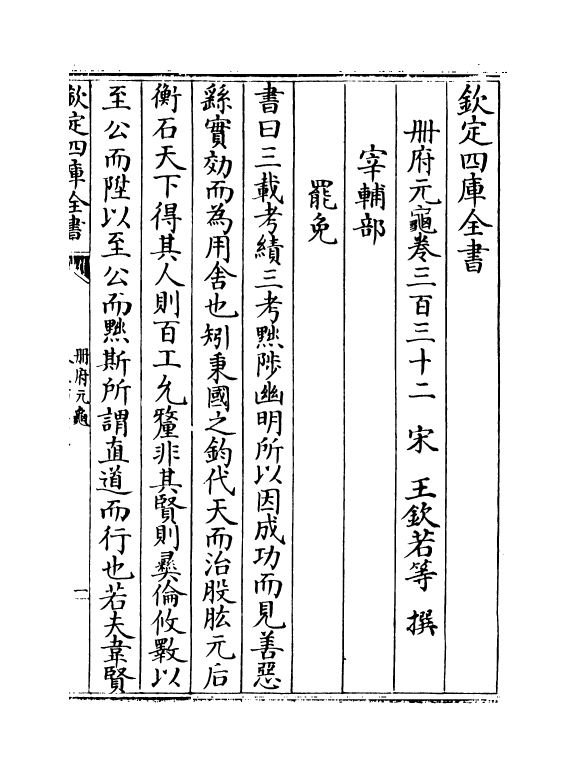 欽定四庫全書
冊府元龜卷三百三十二 宋 王欽若等 撰
宰輔部
罷免
書曰三載考績三考黜陟幽明所以因成功而見善惡
繇實効而為用舍也矧秉國之鈞代天而治股肱元后
衡石天下得其人則百工允釐非其賢則彛倫攸斁以
至公而陞以至公而黜斯所謂直道而行也若夫韋賢
欽定四庫全書
冊府元龜
一